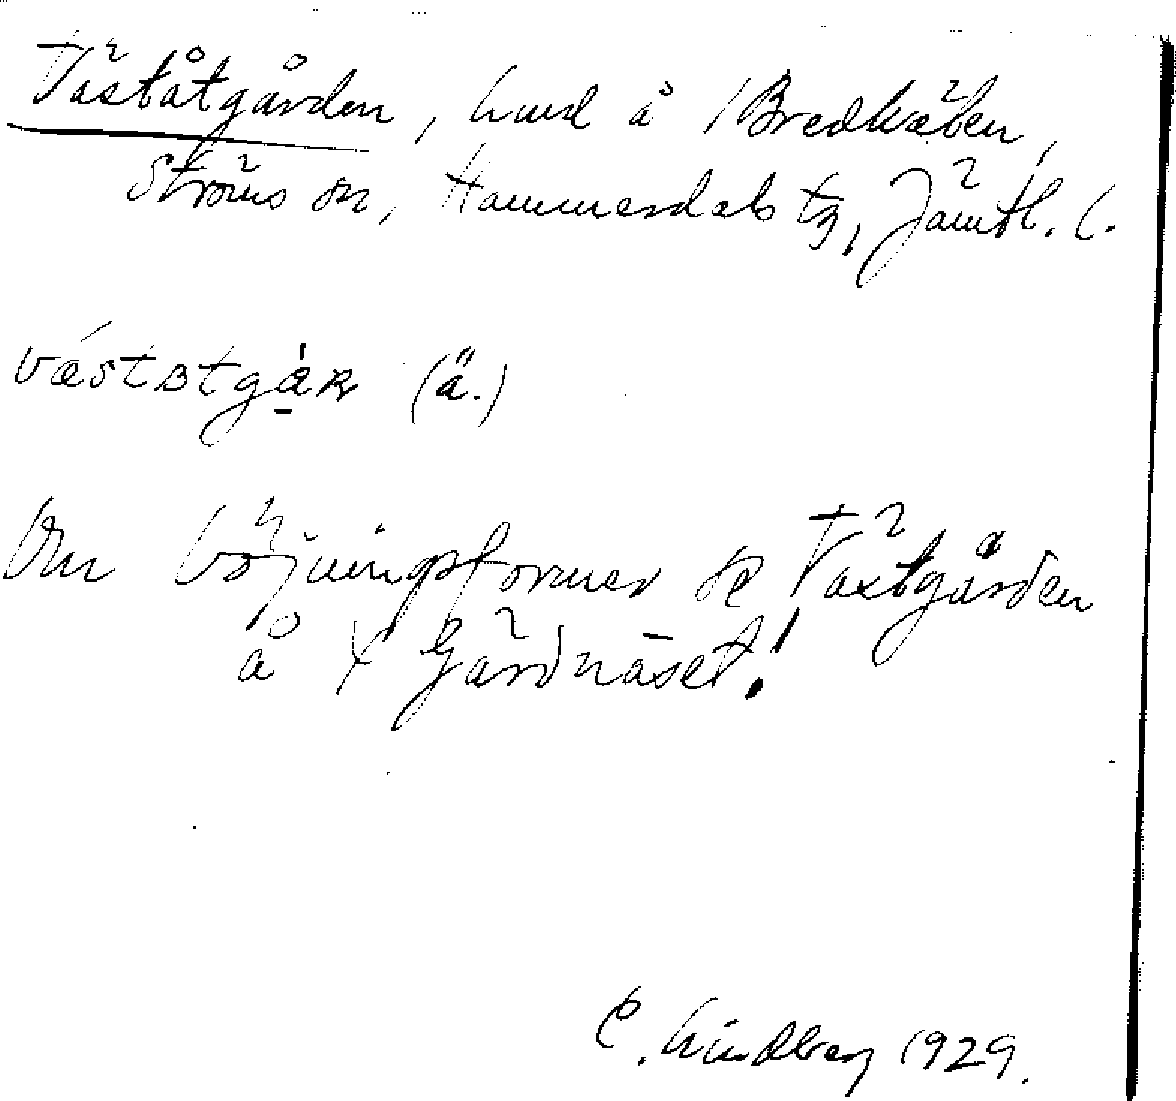 Väståtgården, hmd å /Bredkälen,
Ströms sn, Hammerdals tg, Jämtl. l.
væstɒtgáɴ (ä.)
Om böjningsformer se Västgården
å × Gärdnäset!
C. Lindberg 1929.